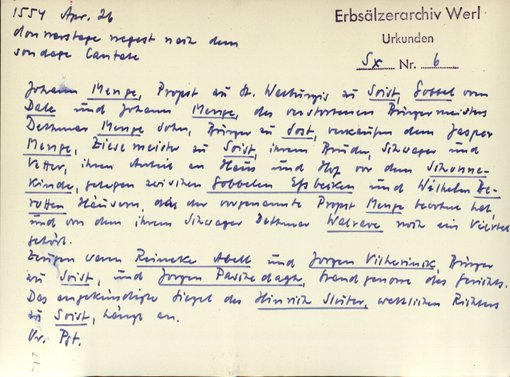 1554 Apr. 26
donnerstags negest nach dem
sondage Cantate
Erbsälzerarchiv Werl
Urkunden
Sx Nr. 6
Johann Menge, Propst zu St. Walburgis zu Soist, Gobbel vam
Dale und Johann Menge, des verstorbenen Bürgermeisters
Dethmar Menge Sohn, Bürger zu Sost, verkaufen dem Jasper
Menge, Ziesemeister zu Soist, ihrem Bruder, Schwager und
Vetter, ihren Anteil an Haus und Hof vor dem Schonne-
kinde, gelegen zwischen Gobbelen Essbeiken und Wilhelm
Häusern, das der vorgenannte Propst Menge bewohnt hat,
und von dem ihrem Schwager Dethmar Walrave noch ein Viertel
gehört.
Zeugen waren Reineke Abell und Jorgen Bürger
zu Soist, und Jorgen des Gerichts.
Das angekündigte Siegel des Hinrich Sluter, weltlichen Richters
zu Soist, hängt an.
Or. Pgt.